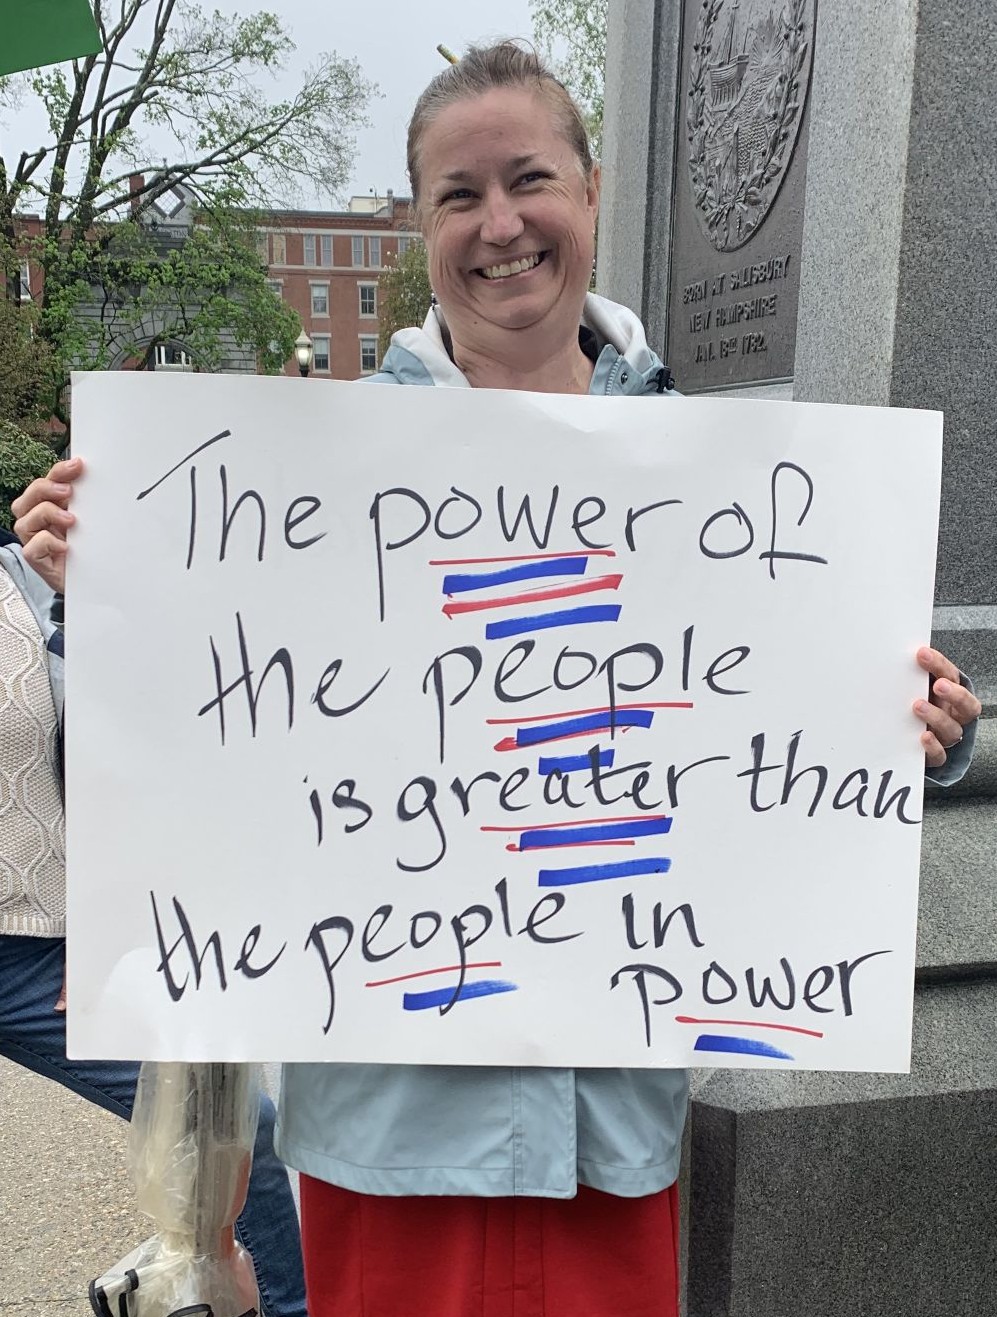 BORN AT SALISBURY
NEW HAMPSHIRE
JAN. 18TH 1782.
The power of
the people
is greater than
the people in
power